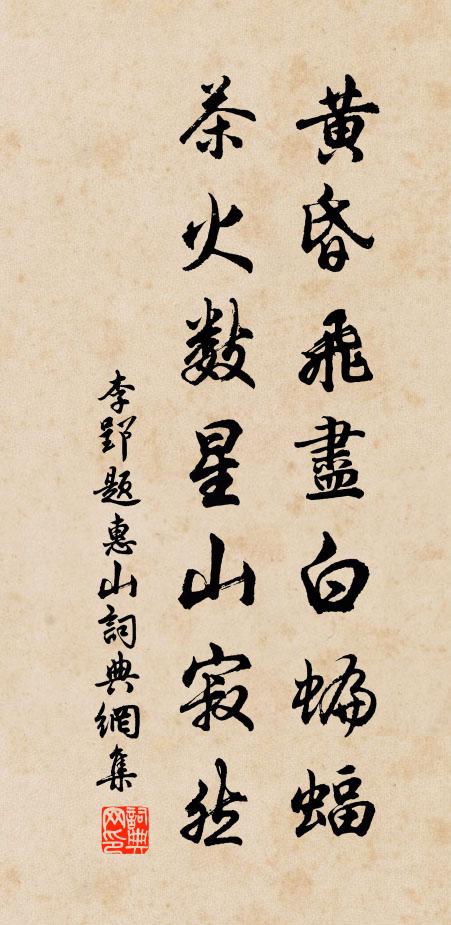 黄昏飛盡白蝙蝠
茶火數星山寂然
李郢題惠山詞典網集
詞典網印